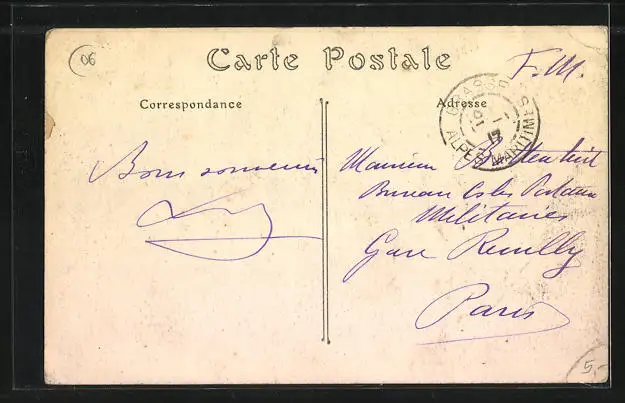 06
Carte Postale
F.M.
Correspondance
Adresse
GRASSE
ALPES MARITIMES
Bons souvenirs
Monsieur
Bureau Colis Postaux
Militaires
Gare Reuilly
Paris
5.-